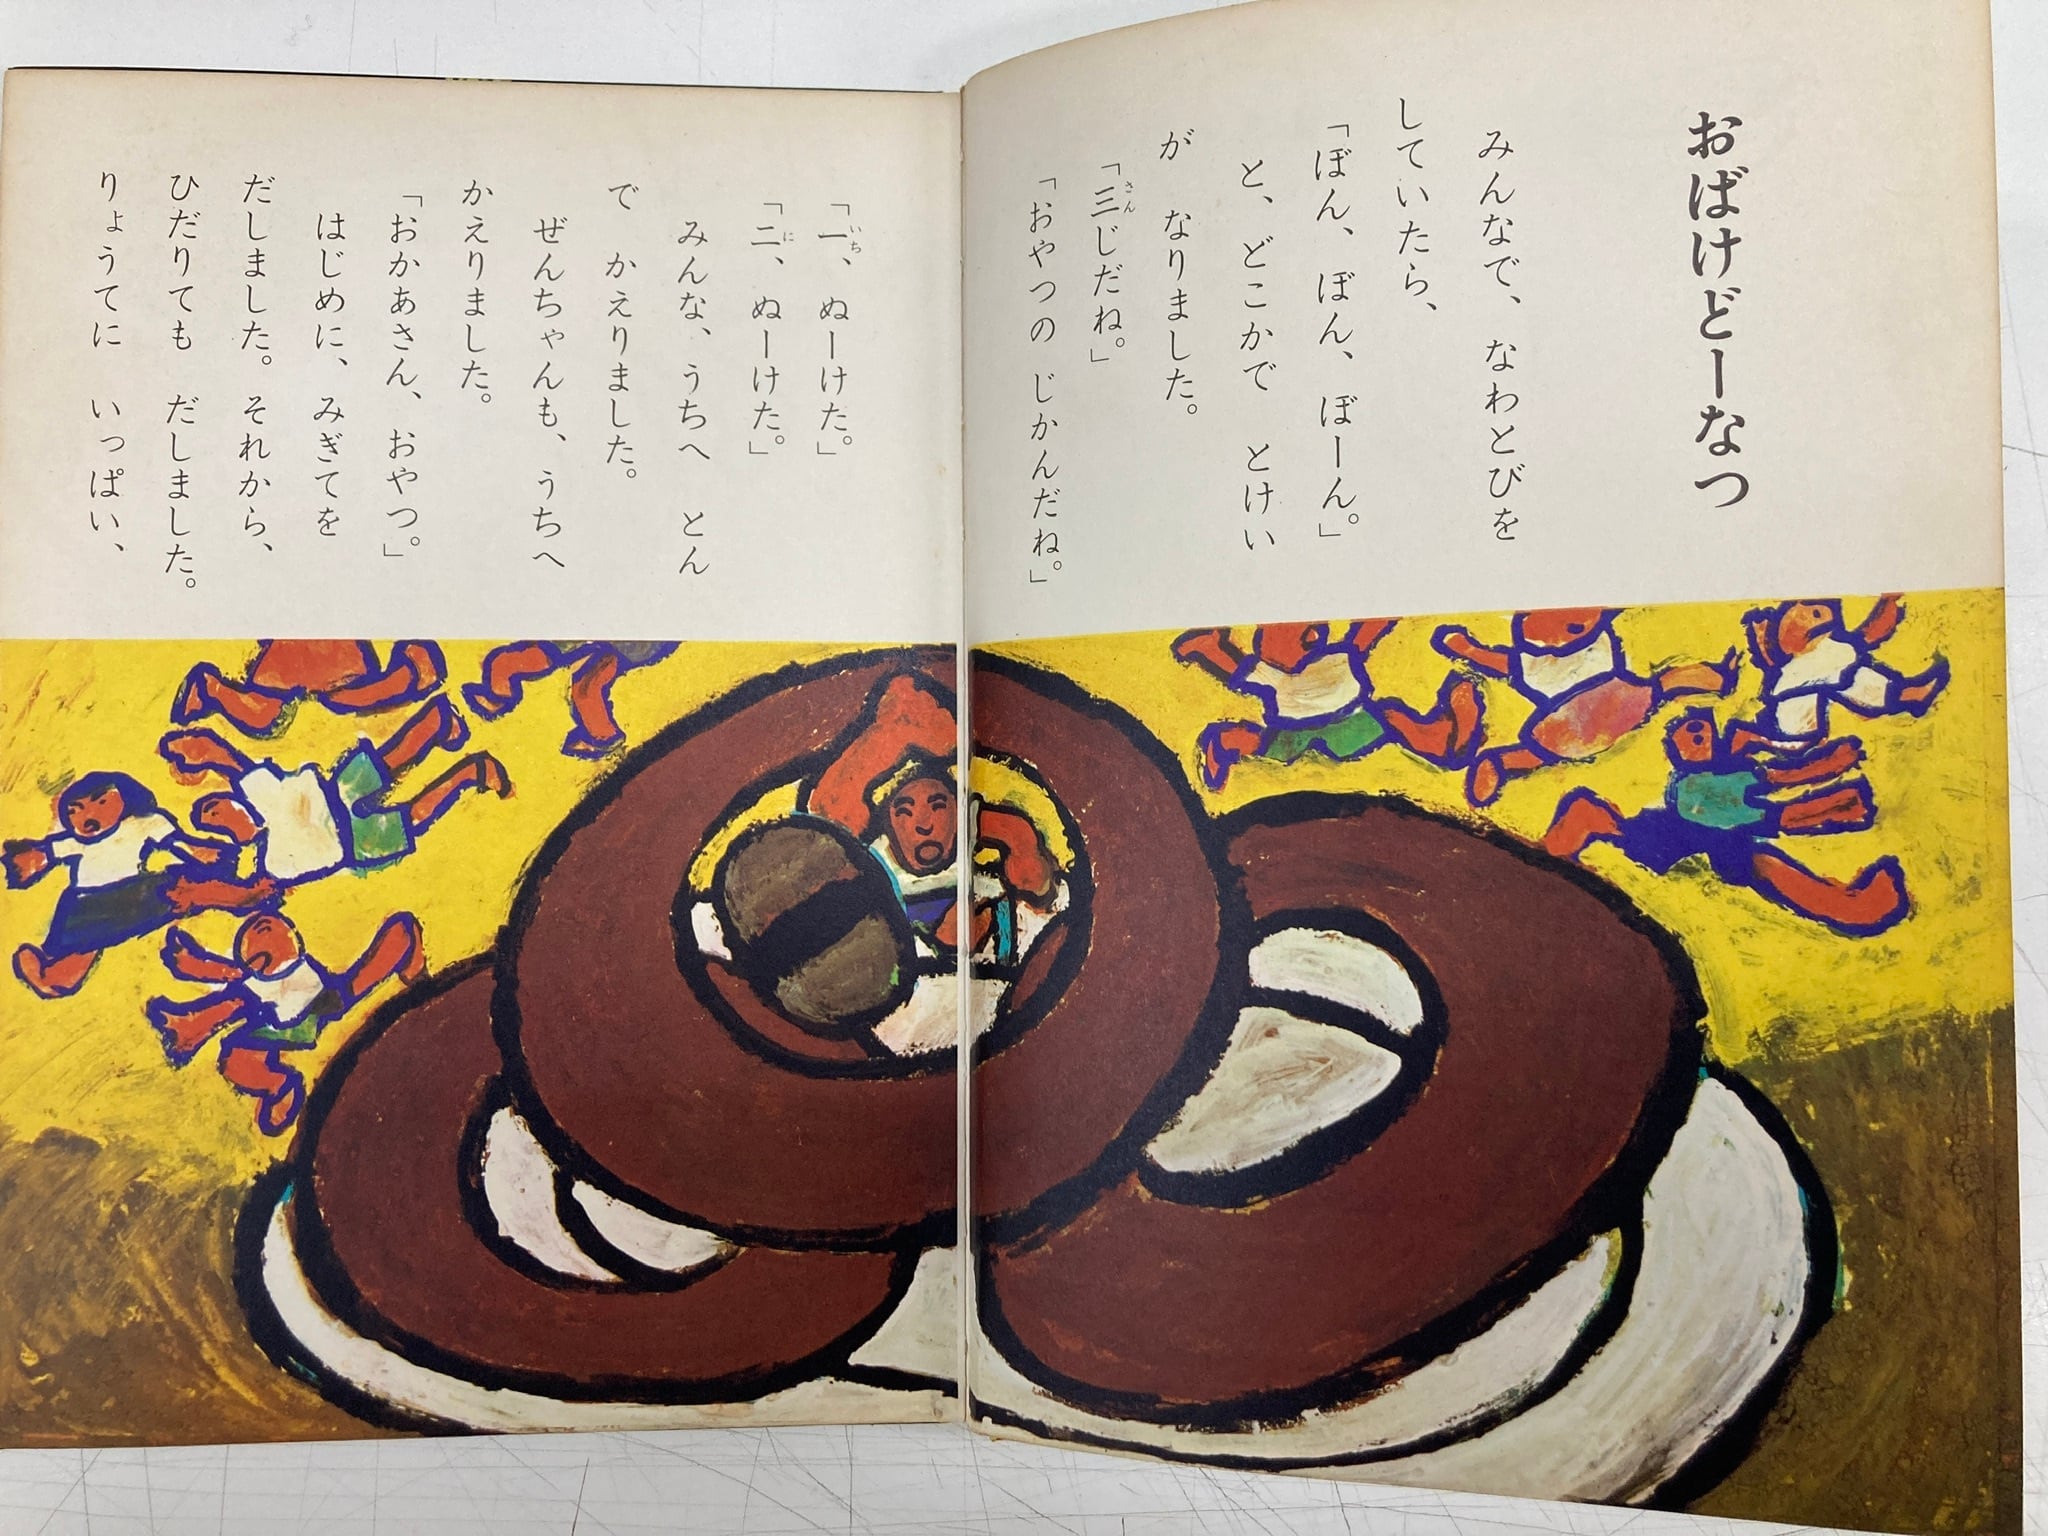 おばけどーなつ
みんなで、なわとびを
していたら、
「ぼん、ぼん、ぼーん。」
と、どこかで とけい
が なりました。
「三じだね。」
さん
「おやつの じかんだね。」
「一、ぬーけた。」
いち
「二、ぬーけた。」
に
みんな、うちへ とん
で かえりました。
ぜんちゃんも、うちへ
かえりました。
「おかあさん、おやつ。」
はじめに、みぎてを
だしました。それから、
ひだりても だしました。
りょうてに いっぱい、